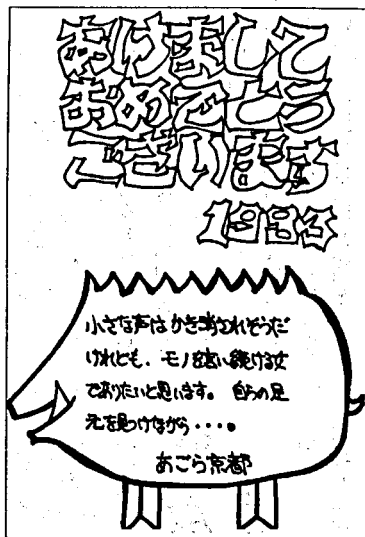 あけまして
おめでとう
ございます
1983
小さな声はかき消されそうだ
けれども、モノを言い続ける丈
でありたいと思います。自らの足
元を見つけながら・・・・。
あごら京都